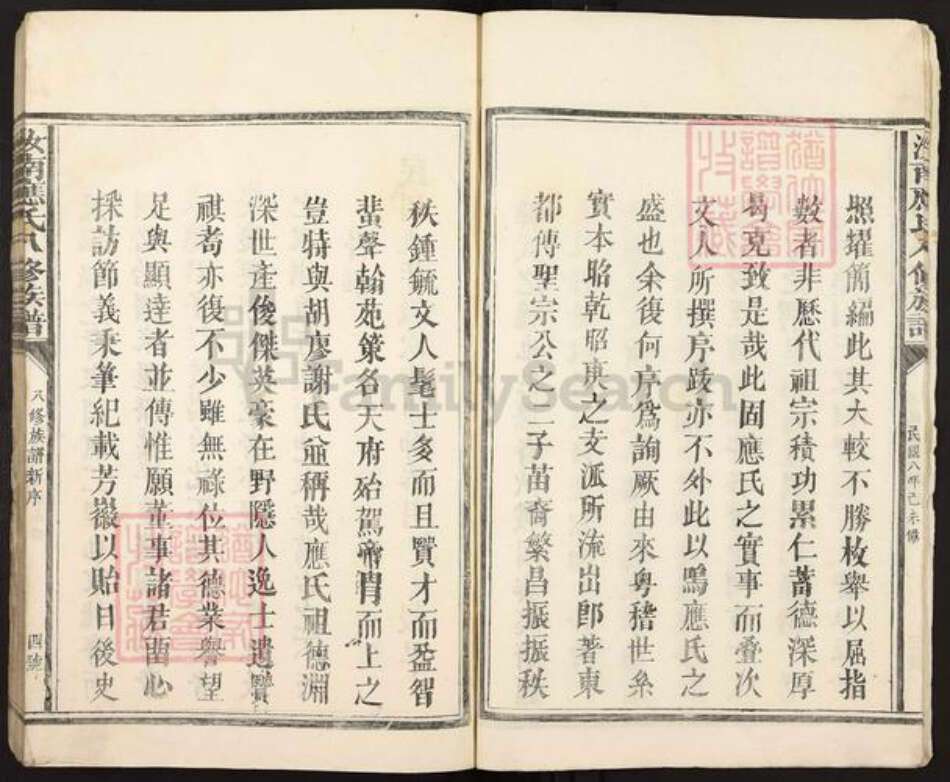 汝南應氏八修族譜
民國八年己未修
照耀簡編此其大較不勝枚舉以屈指
數者非歷代祖宗積功累仁蓄德深厚
曷克致是哉此固應氏之實事而疊次
文人所撰序跋亦不外此以鳴應氏之
盛也余復何序爲詢厥由來粤稽世系
實本昭乾昭庚之支派所流出郎著東
都傅聖宗公之二子苗裔繁昌振振秩
秩鍾毓文人髦士多而且賢才而盈智
蜚聲翰苑策名天府殆駕帝胄而上之
豈特與胡廖謝氏竝稱哉應氏祖德淵
深世產俊傑英豪在野隱人逸士遺賢
祺耆亦復不少雖無祿位其德業譽望
足與顯達者並傳惟願董事諸君凾心
採訪節義秉筆紀載芳徽以貽日後史
汝南應氏八修族譜
八修族譜新序
四號
FamilySearch